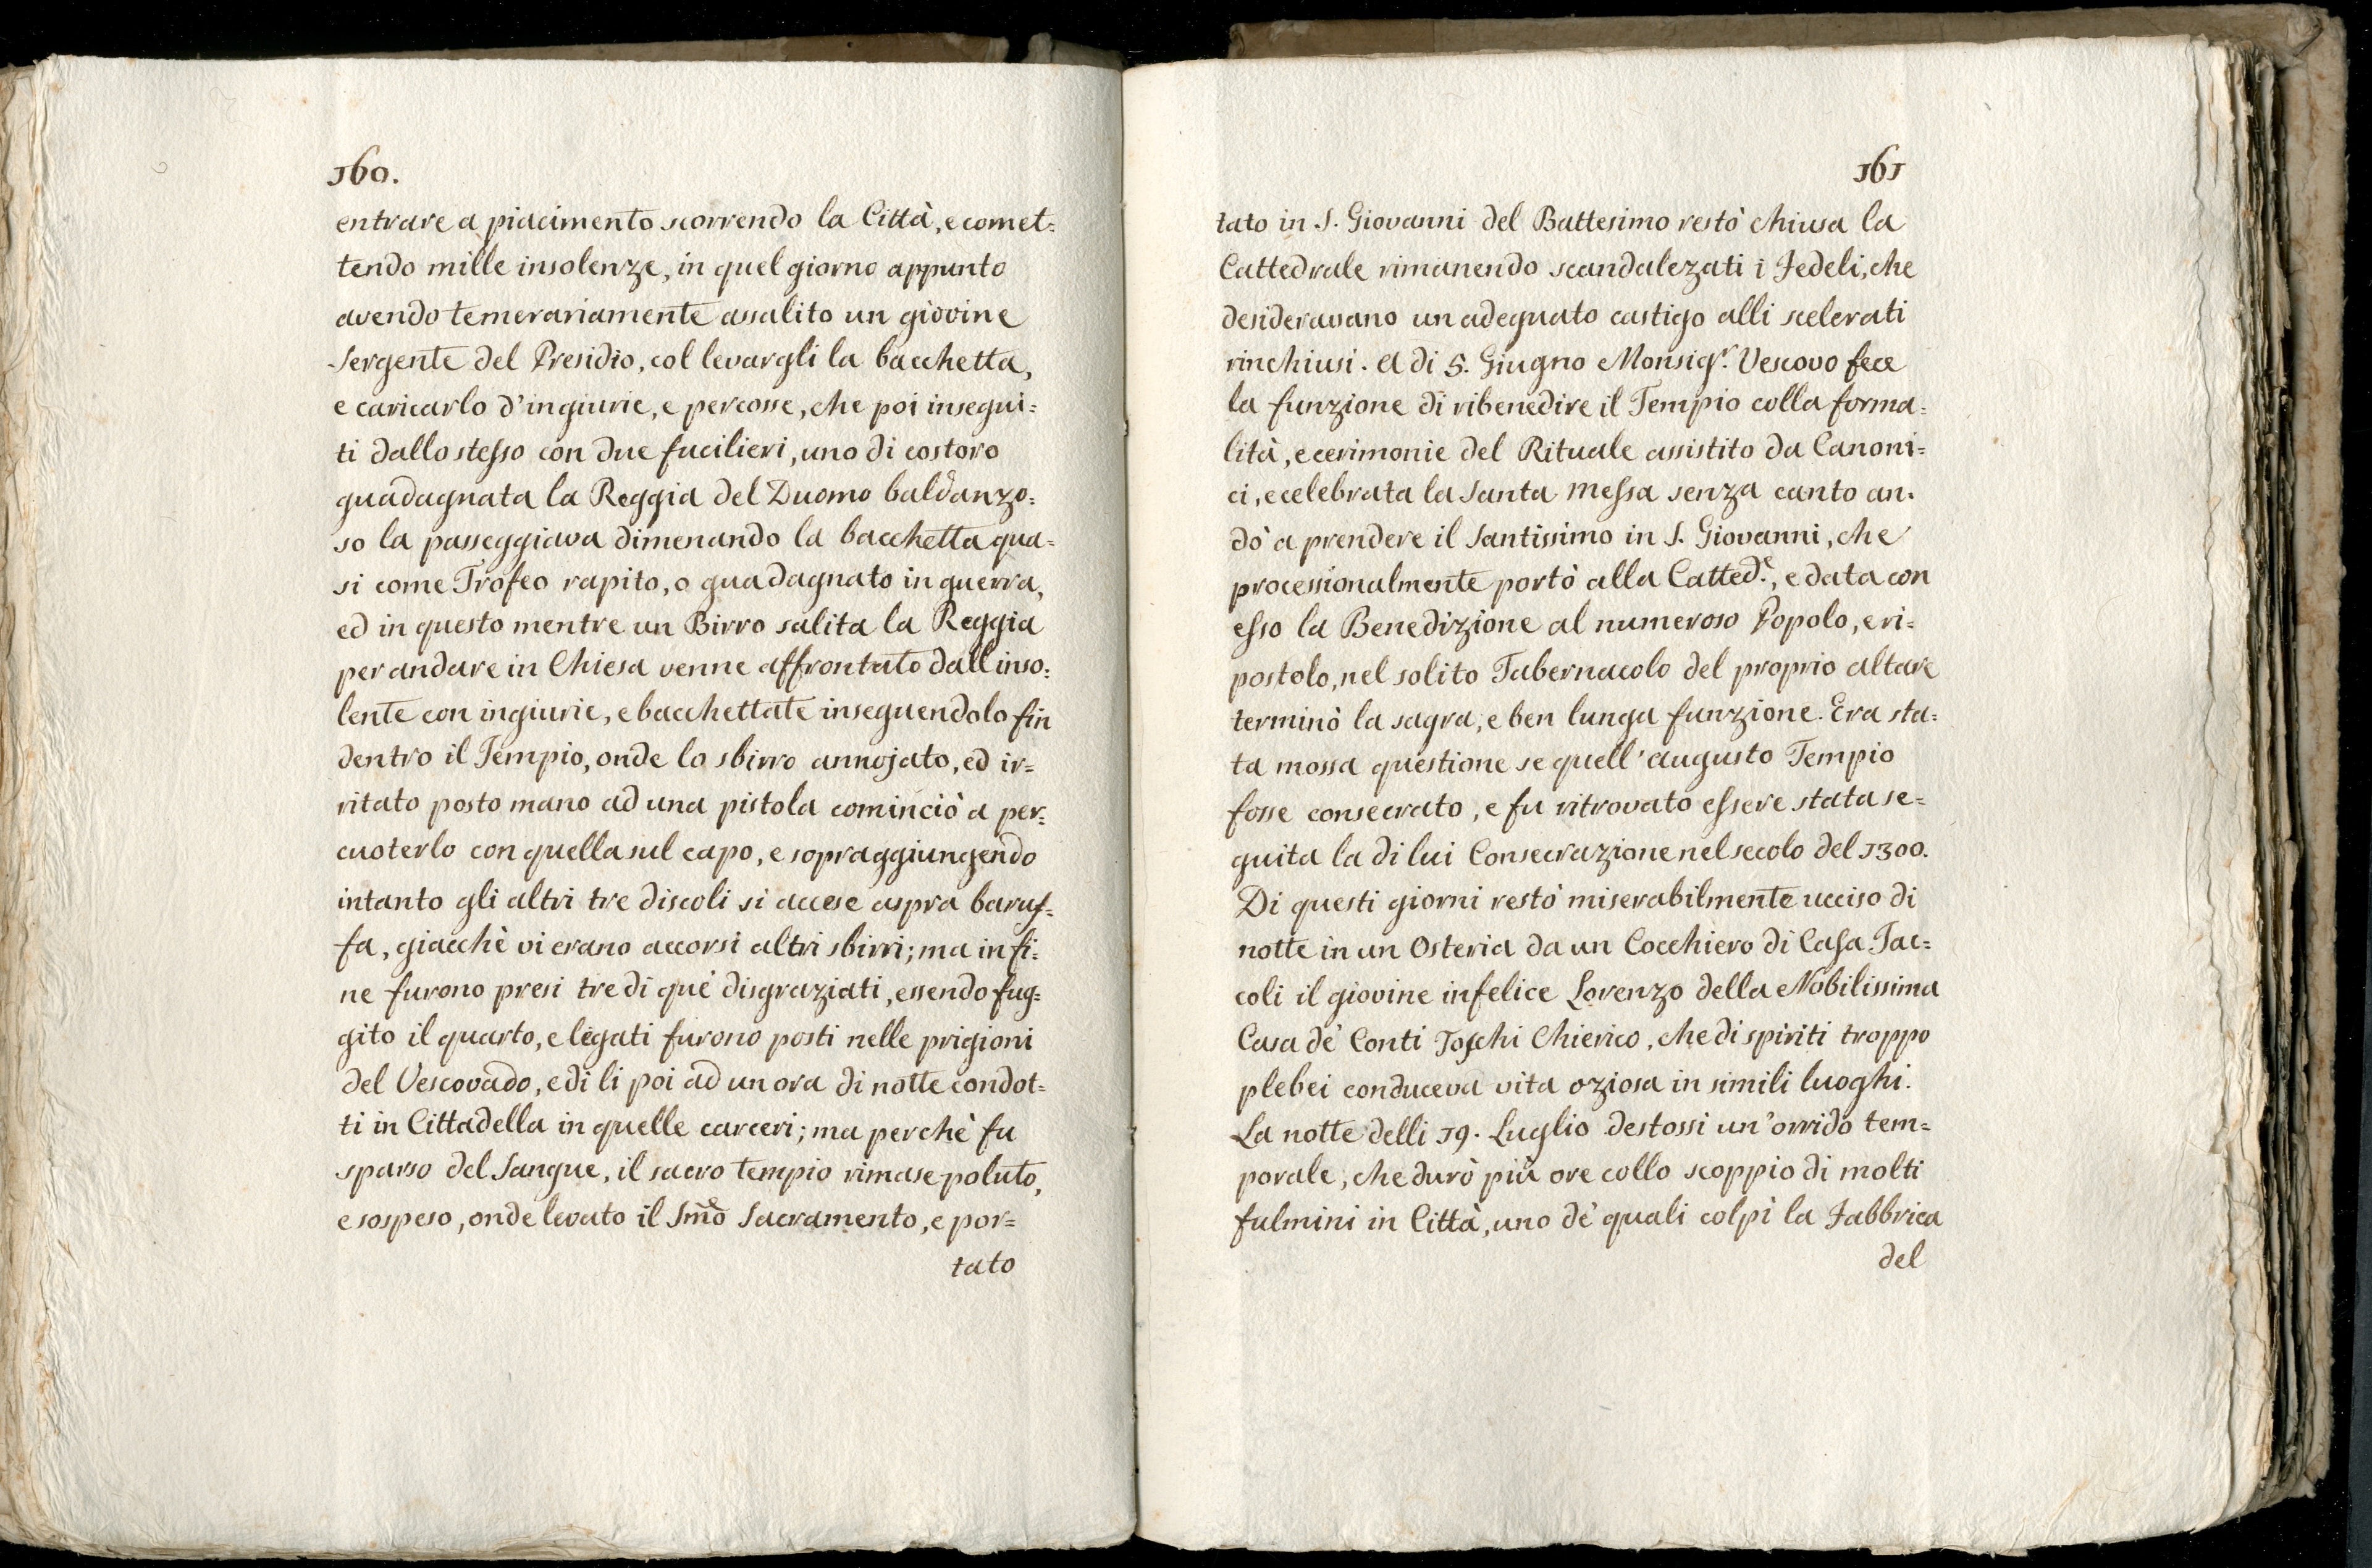 160.
entrare a piacimento scorrendo la Città, e comet=
tendo mille insolenze, in quel giorno appunto
avendo temerariamente assalito un giovine
Sergente del Presidio, col levargli la bacchetta,
e caricarlo d'ingiurie, e percosse, che poi insegui=
ti dallo stesso con due fucilieri, uno di costoro
guadagnata la Reggia del Duomo baldanzo=
so la passeggiava dimenando la bacchetta qua=
si come Trofeo rapito, o guadagnato in guerra,
ed in questo mentre un Birro salita la Reggia
per andare in Chiesa venne affrontato dall'inso=
lente con ingiurie, e bacchettate inseguendolo fin
dentro il Tempio, onde lo sbirro annojato, ed ir=
ritato posto mano ad una pistola cominciò a per=
cuoterlo con quella sul capo, e sopraggiungendo
intanto gli altri tre discoli si accese aspra baruf=
fa, giacchè vi erano accorsi altri sbirri; ma in fi=
ne furono presi tre di què disgraziati, essendo fug=
gito il quarto, e legati furono posti nelle prigioni
del Vescovado, e di li poi ad un ora di notte condot=
ti in Cittadella in quelle carceri; ma perchè fu
sparso del Sangue, il sacro tempio rimase poluto,
e sospeso, onde levato il Smo Sacramento, e por=
tato
161
tato in S. Giovanni del Battesimo restò chiusa la
Cattedrale rimanendo scandalezati i Fedeli, che
desideravano un adeguato castigo alli scelerati
rinchiusi. A di 5. Giugno Monsigr. Vescovo fece
la funzione di ribenedire il Tempio colla forma=
lità, e cerimonie del Rituale assistito da Canoni=
ci, e celebrata la Santa Messa senza canto an=
dò a prendere il Santissimo in S. Giovanni, che
processionalmente portò alla Catted.e, e data con
esso la Benedizione al numeroso Popolo, e ri=
postolo, nel solito Tabernacolo del proprio altare
terminò la sagra, e ben lunga funzione. Era sta=
ta mossa questione se quell'augusto Tempio
fosse consecrato, e fu ritrovato essere stata se=
guita la di lui Consecrazione nel secolo del 1300.
Di questi giorni restò miserabilmente ucciso di
notte in un Osteria da un Cocchiero di Casa Tac=
coli il giovine infelice Lorenzo della Nobilissima
Casa de' Conti Toschi Chierico, che di spiriti troppo
plebei conduceva vita oziosa in simili luoghi.
La notte delli 19. Luglio destossi un'orrido tem=
porale, che durò più ore collo scoppio di molti
fulmini in Città, uno de' quali colpì la Fabbrica
del